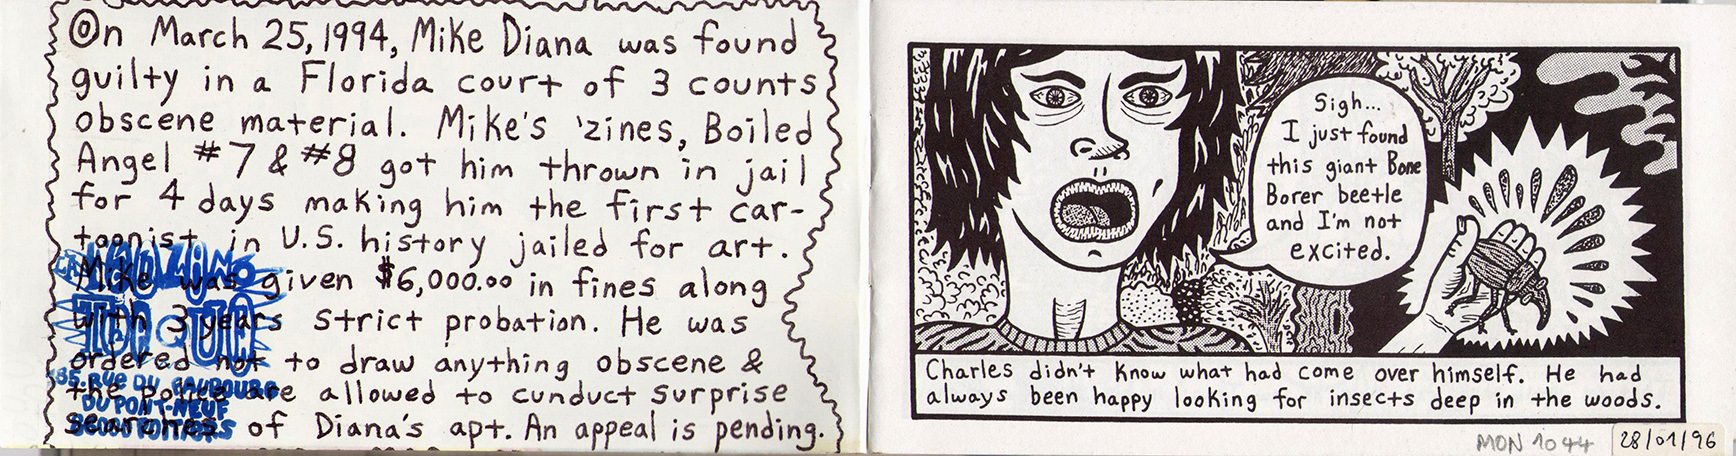 On March 25, 1994, Mike Diana was found
guilty in a Florida court of 3 counts
obscene material. Mike's 'zines, Boiled
Angel #7 & #8 got him thrown in jail
for 4 days making him the first car-
toonist in U.S. history jailed for art.
Mike was given $6,000.00 in fines along
with 3 years strict probation. He was
ordered not to draw anything obscene &
the police are allowed to cunduct surprise
searches of Diana's apt. An appeal is pending.
85 RUE DU FAUBOURG
DU PONT-NEUF
POITIERS
Sigh...
I just found
this giant Bone
Borer beetle
and I'm not
excited.
Charles didn't know what had come over himself. He had
always been happy looking for insects deep in the woods.
MON 1044
28/01/96